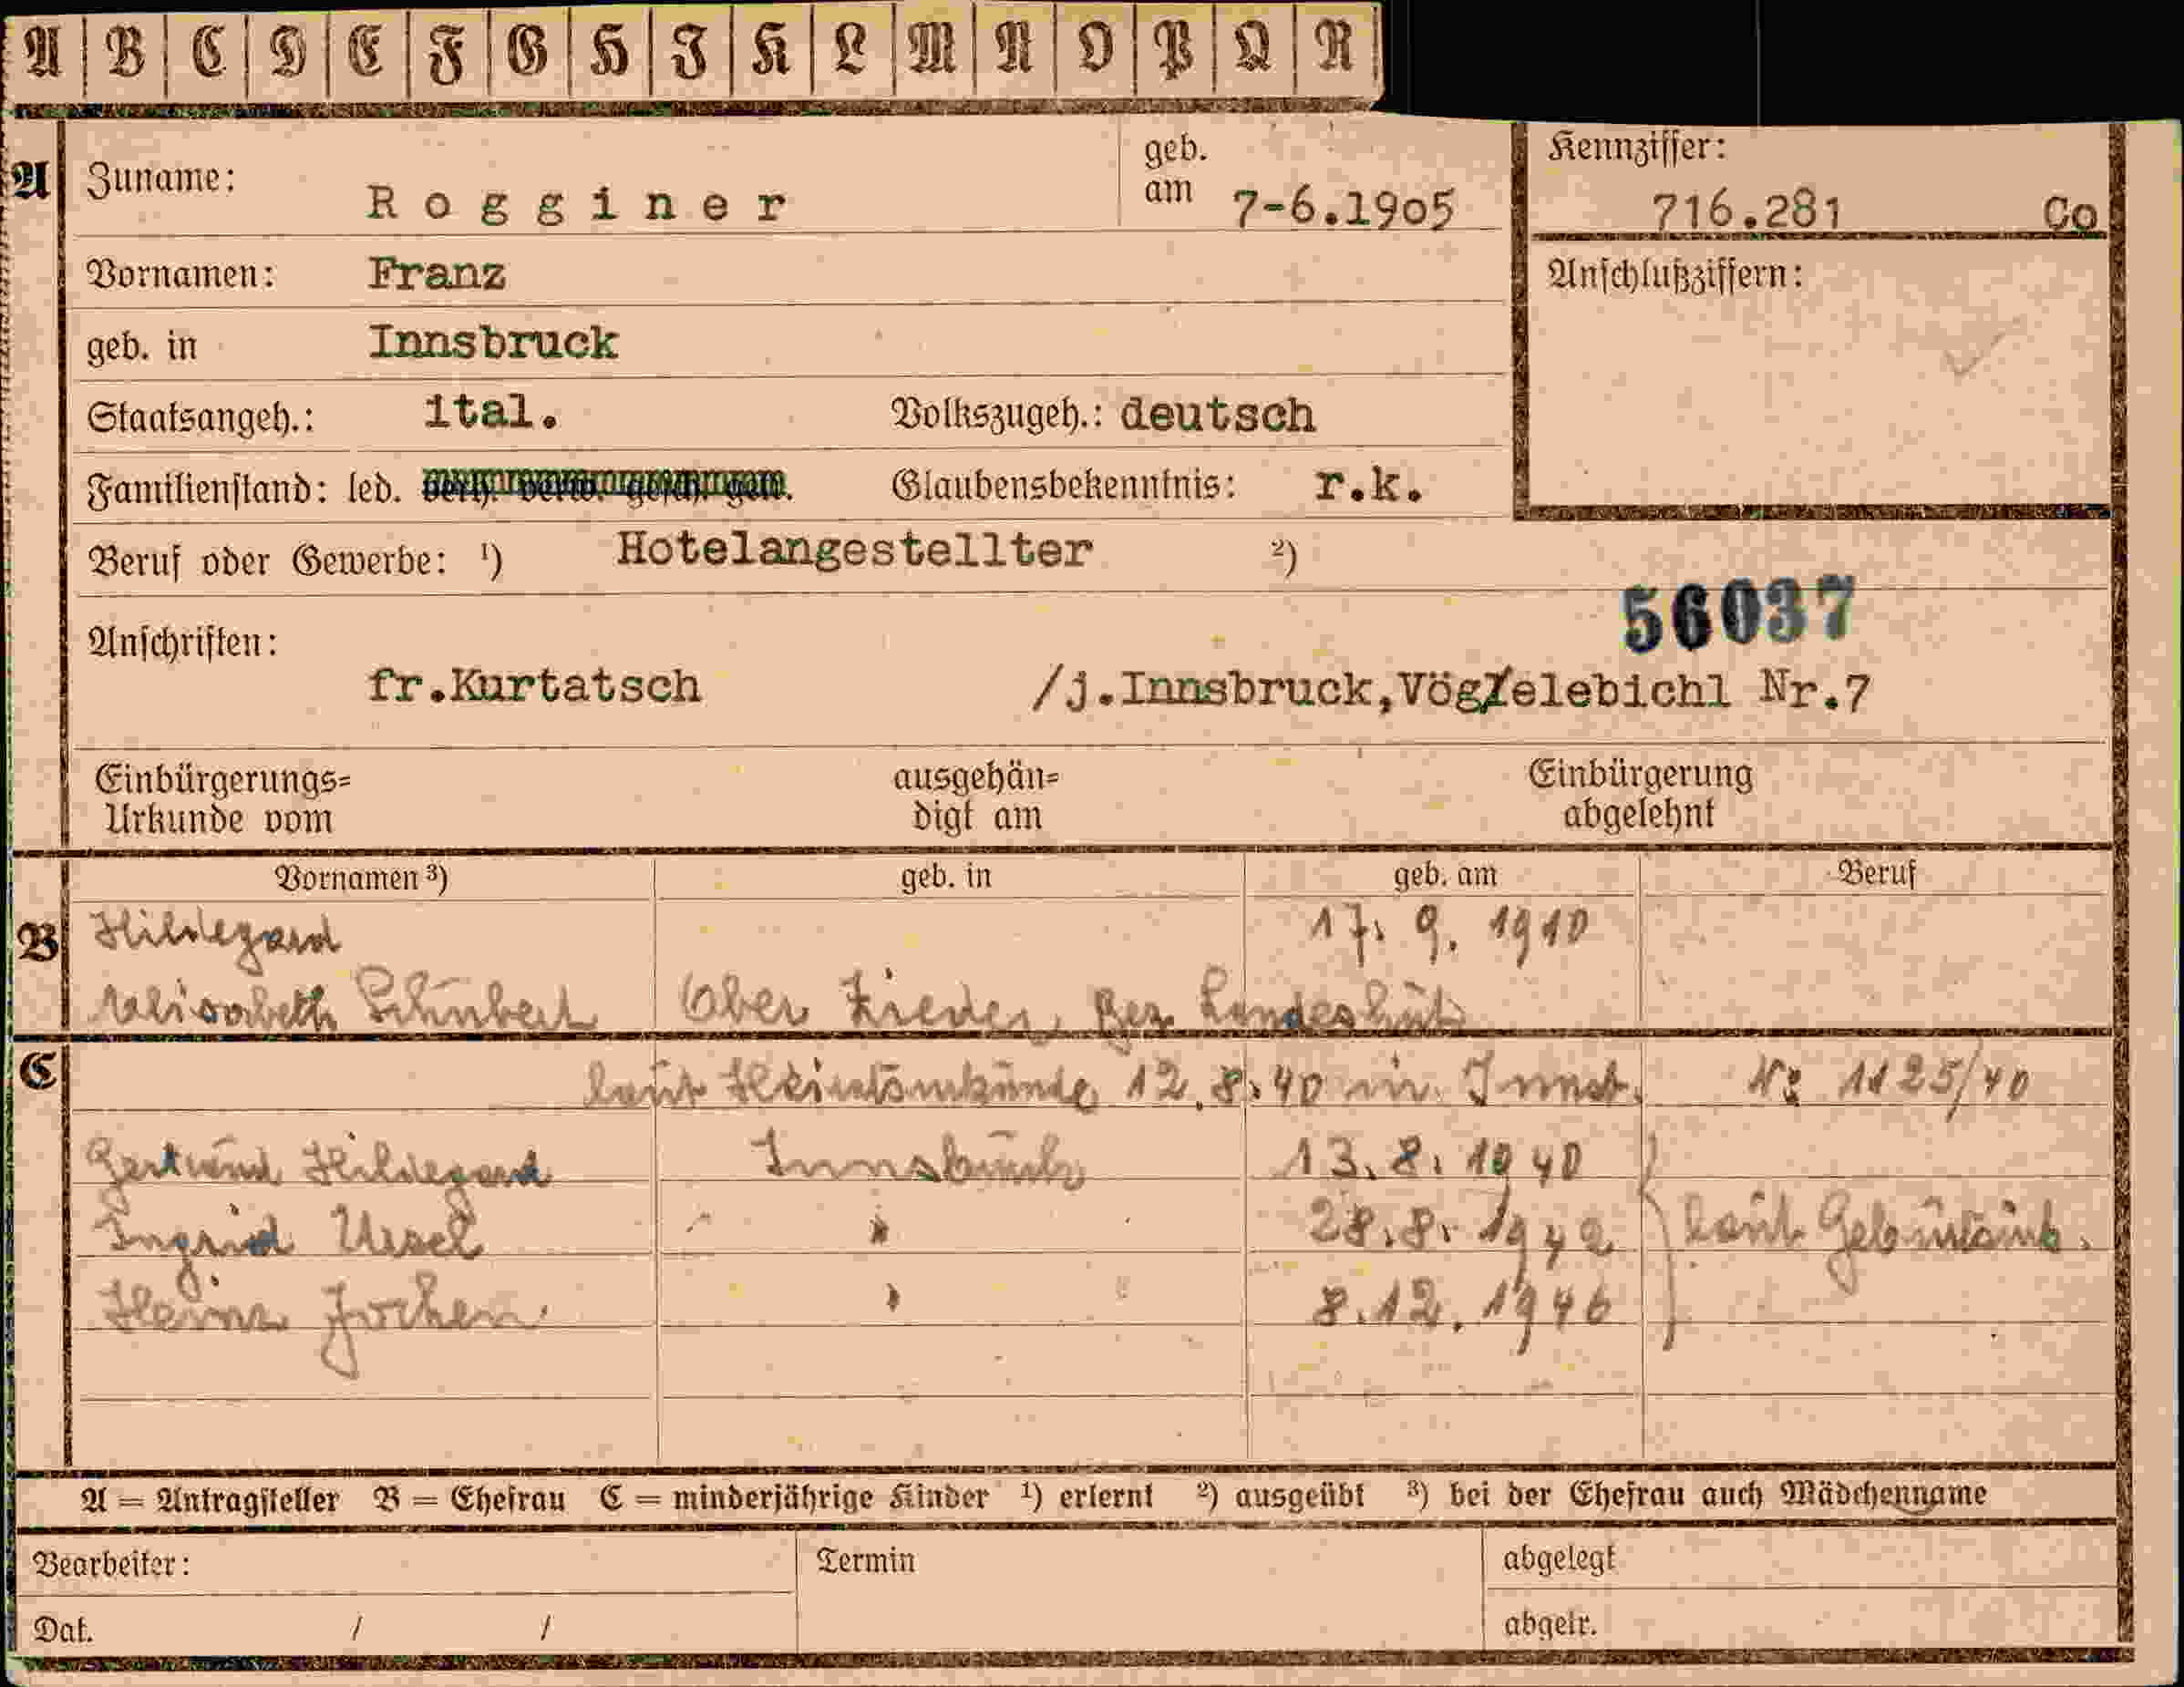 A B C D E F G H I K L M N O P Q R
A Zuname: Rogginer geb. am 7-6.1905 Kennziffer: 716.281 Co
Vornamen: Franz Anschlußziffern:
geb. in Innsbruck
Staatsangeh.: ital. Volkszugeh.: deutsch
Familienstand: led. verh. verw. gesch. getr. Glaubensbekenntnis: r.k.
Beruf oder Gewerbe: ¹) Hotelangestellter ²)
56037
Anschriften:
fr.Kurtatsch /j.Innsbruck,Vögelebichl Nr.7
Einbürgerungs= ausgehän= Einbürgerung
Urkunde vom digt am abgelehnt
Vornamen ³) geb. in geb. am Beruf
B Hildegard 17. 9. 1910
Elisabeth Schubert Ober Zieder, Bez Landeshut
C laut Heiratsurkunde 12.8.40 in Innsb. No 1125/40
Gertraud Hildegard Innsbruck 13.8.1940
Ingrid Ursel " 28.8.1942 laut Geburtsurk.
Heinz Jochen " 8.12.1946
A = Antragsteller B = Ehefrau C = minderjährige Kinder ¹) erlernt ²) ausgeübt ³) bei der Ehefrau auch Mädchenname
Bearbeiter: Termin abgelegt
Dat. / / abgetr.